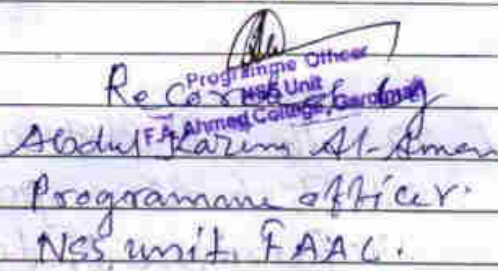 Programme Officer
NSS Unit
F.A. Ahmed College, Garoimari
Recorded by
Abdul Karim Al-Aman
Programme officer.
NSS unit, FAAC.